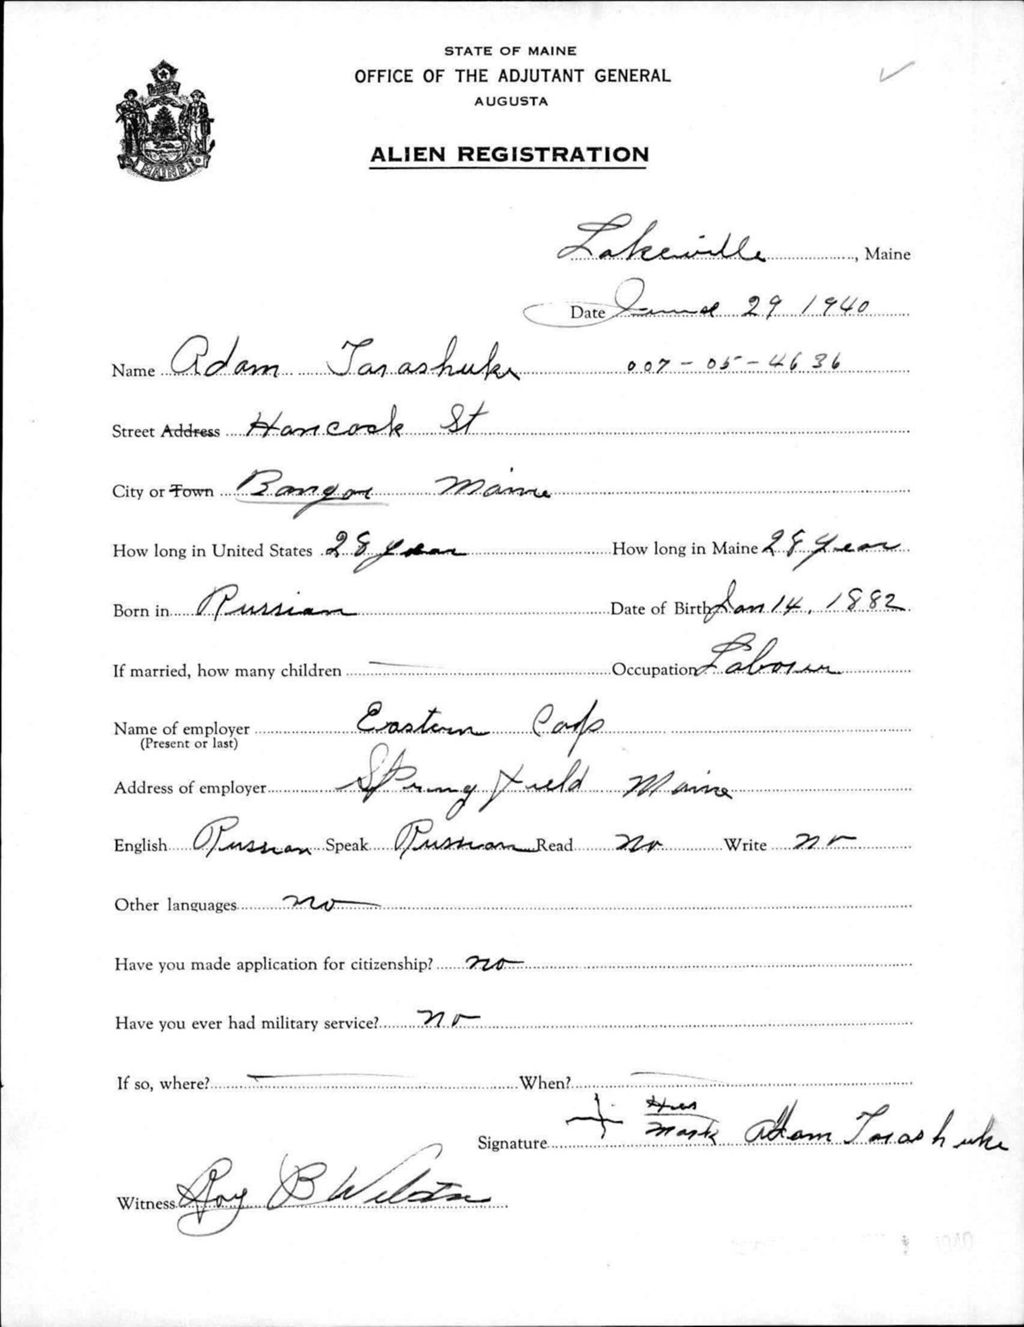 STATE OF MAINE
OFFICE OF THE ADJUTANT GENERAL
AUGUSTA
ALIEN REGISTRATION
MAINE
Lakeville, Maine
Date June 29 1940
Name Adam Tarashuke 007-05-4636
Street Address Hancock St
City or Town Bangor Maine
How long in United States 28 year How long in Maine 28 year
Born in Russian Date of Birth Jan 14, 1882
If married, how many children — Occupation Laborer
Name of employer Eastern Corp
(Present or last)
Address of employer Springfield Maine
English Russian Speak Russian Read no Write no
Other languages no
Have you made application for citizenship? no
Have you ever had military service? no
If so, where? — When? —
Signature + His mark Adam Tarashuke
Witness Roy B